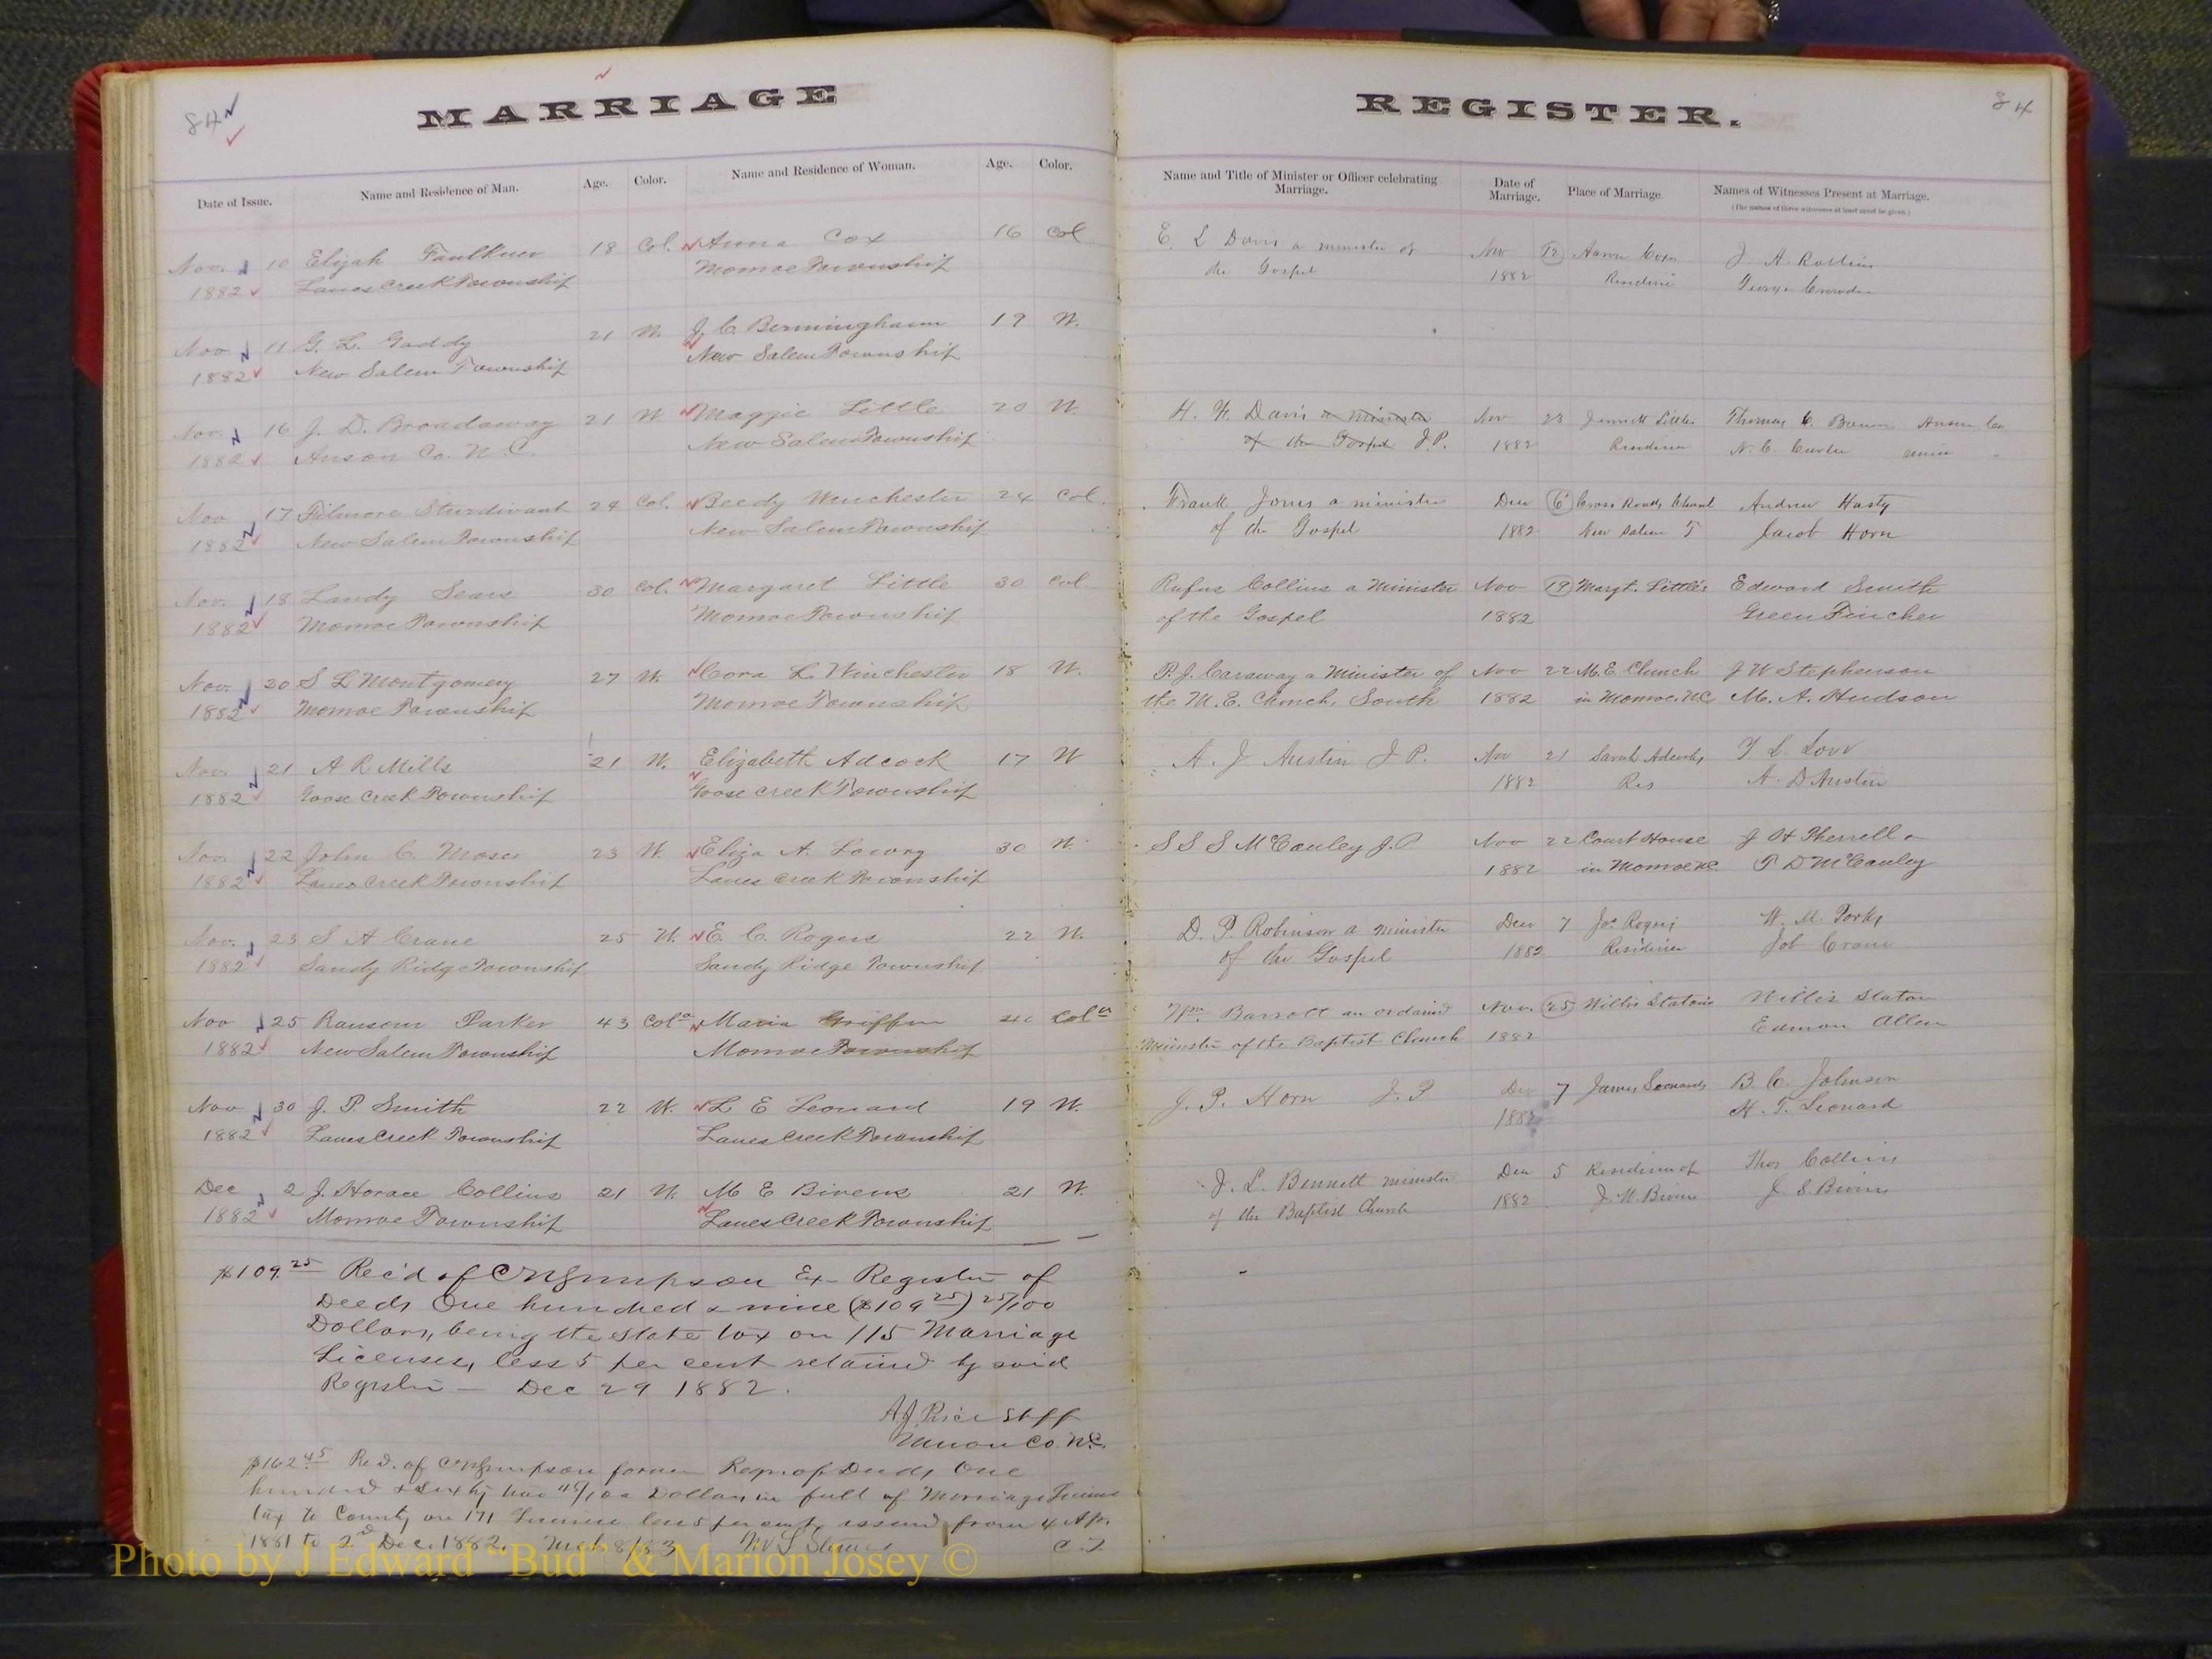 84
MARRIAGE
Date of Issue. Name and Residence of Man. Age. Color. Name and Residence of Woman. Age. Color.
Nov. 10 Elijah Faulkner 18 Col. Anna Cox 16 Col
1882 Lanes Creek Township Monroe Township
Nov 11 G. L. Gaddy 21 W. J. C. Bermingham 19 W.
1882 New Salem Township New Salem Township
Nov. 16 J. D. Broadaway 21 W. Maggie Little 20 W.
1882 Anson Co. N.C. New Salem Township
Nov 17 Filmore Sturdivant 24 Col. Beedy Winchester 24 Col.
1882 New Salem Township New Salem Township
Nov. 18 Landy Sears 30 Col. Margaret Little 30 Col
1882 Monroe Township Monroe Township
Nov. 20 S L Montgomery 27 W. Cora L. Winchester 18 W.
1882 Monroe Township Monroe Township
Nov. 21 A R Mills 21 W. Elizabeth Adcock 17 W
1882 Goose Creek Township Goose Creek Township
Nov. 22 John C. Moser 23 W. Eliza A. Lowry 30 W.
1882 Lanes Creek Township Lanes Creek Township
Nov. 23 S A Crane 25 W. E. C. Rogers 22 W.
1882 Sandy Ridge Township Sandy Ridge Township
Nov 25 Ransom Parker 43 Cold Maria Griffin Cold
1882 New Salem Township Monroe Township
Nov 30 J. P. Smith 22 W. L E Leonard 19 W.
1882 Lanes Creek Township Lanes Creek Township
Dec 2 J. Horace Collins 21 W. M E Bivens 21 W.
1882 Monroe Township Lanes Creek Township
$109.25 Rec'd of C N Simpson Ex Register of
Deeds One hundred & nine ($109 25) 25/100
Dollars, being the State tax on 115 Marriage
Licenses, less 5 per cent retained by said
Register — Dec 29 1882.
A J Price Shff
Union Co. N.C.
$162 45 Red. of C N Simpson former Regr of Deeds One
hundred & Sixty two 45/100 Dollars in full of Marriage License
tax to County on 171 License less 5 per cent, issued from 4 Apr.
1881 to 2nd Dec. 1882. Mch 8/83 C.T.
Photo by J Edward “Bud” & Marion Josey ©
REGISTER.
84
Name and Title of Minister or Officer celebrating Marriage. Date of Marriage. Place of Marriage Names of Witnesses Present at Marriage.
(The names of three witnesses at least must be given.)
E. L Davis a minister of Nov 12 Aaron Coxs J. A. Rollins
the Gospel 1882 George Crowder
H. H. Davis a minister Nov 23 Thomas C.
of the Gospel J.P. 1882
Frank Jones a minister Dec 6 Cross Roads Andrew Hasty
of the Gospel 1882 New Salem T Jacob Horn
Rufus Collins a Minister Nov 19 Margt. Little's Edward Smith
of the Gospel 1882 Green Fincher
P. J. Carraway a Minister of Nov 22 M. E. Church J W Stephenson
the M. E. Church, South 1882 in Monroe. NC M. A. Hudson
A. J Austin J P. Nov 21 Sarah Adcocks T L. Love
1882 Res A. D Austin
S S S McCauley J. P Nov 22 Court House J H Therrell
1882 in Monroe NC T D McCauley
D. P. Robinson a minister Dec 7 Jos Rogers W. M.
of the Gospel 1882 Residence Job Crane
Wm. Barrott an ordained Nov. 25 Willis Statons Willis Staton
Minister of the Baptist Church 1882 Edmon Allen
J. P. Horn J. P Dec 7 James Leonards B. C. Johnson
1882 H. T. Leonard
J. L. Bennett minister Dec 5 Residence of Thos Collins
of the Baptist Church 1882 J. W. Bivins J. S. Bivins